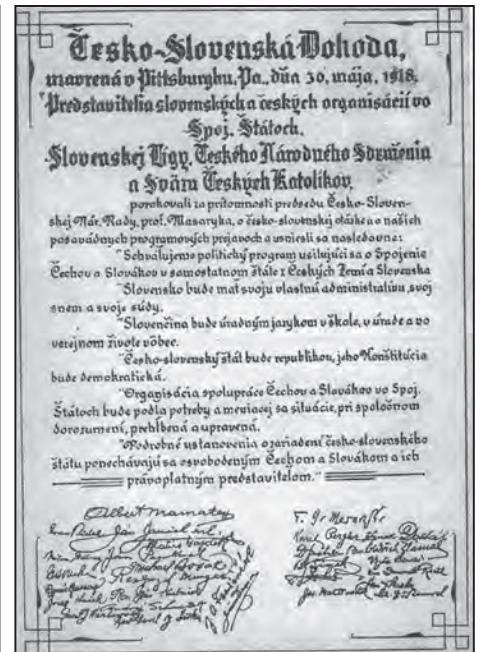 Česko-Slovenská Dohoda,
mavrená v Pittsburghu, Pa., dňa 30. mája, 1918.
Predstavitelia slovenských a českých organisácií vo
Spoj. Štátoch,
Slovenskej Ligy, Českého Národného Sdruženia
a Sväzu Českých Katolíkov,
porokovali za prítomnosti predsedu Česko-Sloven-
skej Nár. Rady, prof. Masaryka, o česko-slovenskej otázke a o našich
posavádnych programových prejavoch a usniesli sa nasledovne:
"Schvaľujeme politický program usilujúci sa o Spojenie
Čechov a Slovákov v samostatnom štáte z Českých Zemí a Slovenska
"Slovensko bude mať svoju vlastnú administratívu, svoj
snem a svoje súdy.
"Slovenčina bude úradným jazykom v škole, v úrade a vo
verejnom živote vôbec.
"Česko-slovenský štát bude republikou, jeho Konštitúcia
bude demokratická.
"Organisácia spolupráce Čechov a Slovákov vo Spoj.
Štátoch bude podľa potreby a meniacej sa situácie, pri spoločnom
dorozumení, prehĺbená a upravená.
"Podrobné ustanovenia o zariadení česko-slovenského
štátu ponechávajú sa osvobodeným Čechom a Slovákom a ich
právoplatným predstaviteľom."
Albert Mamatey